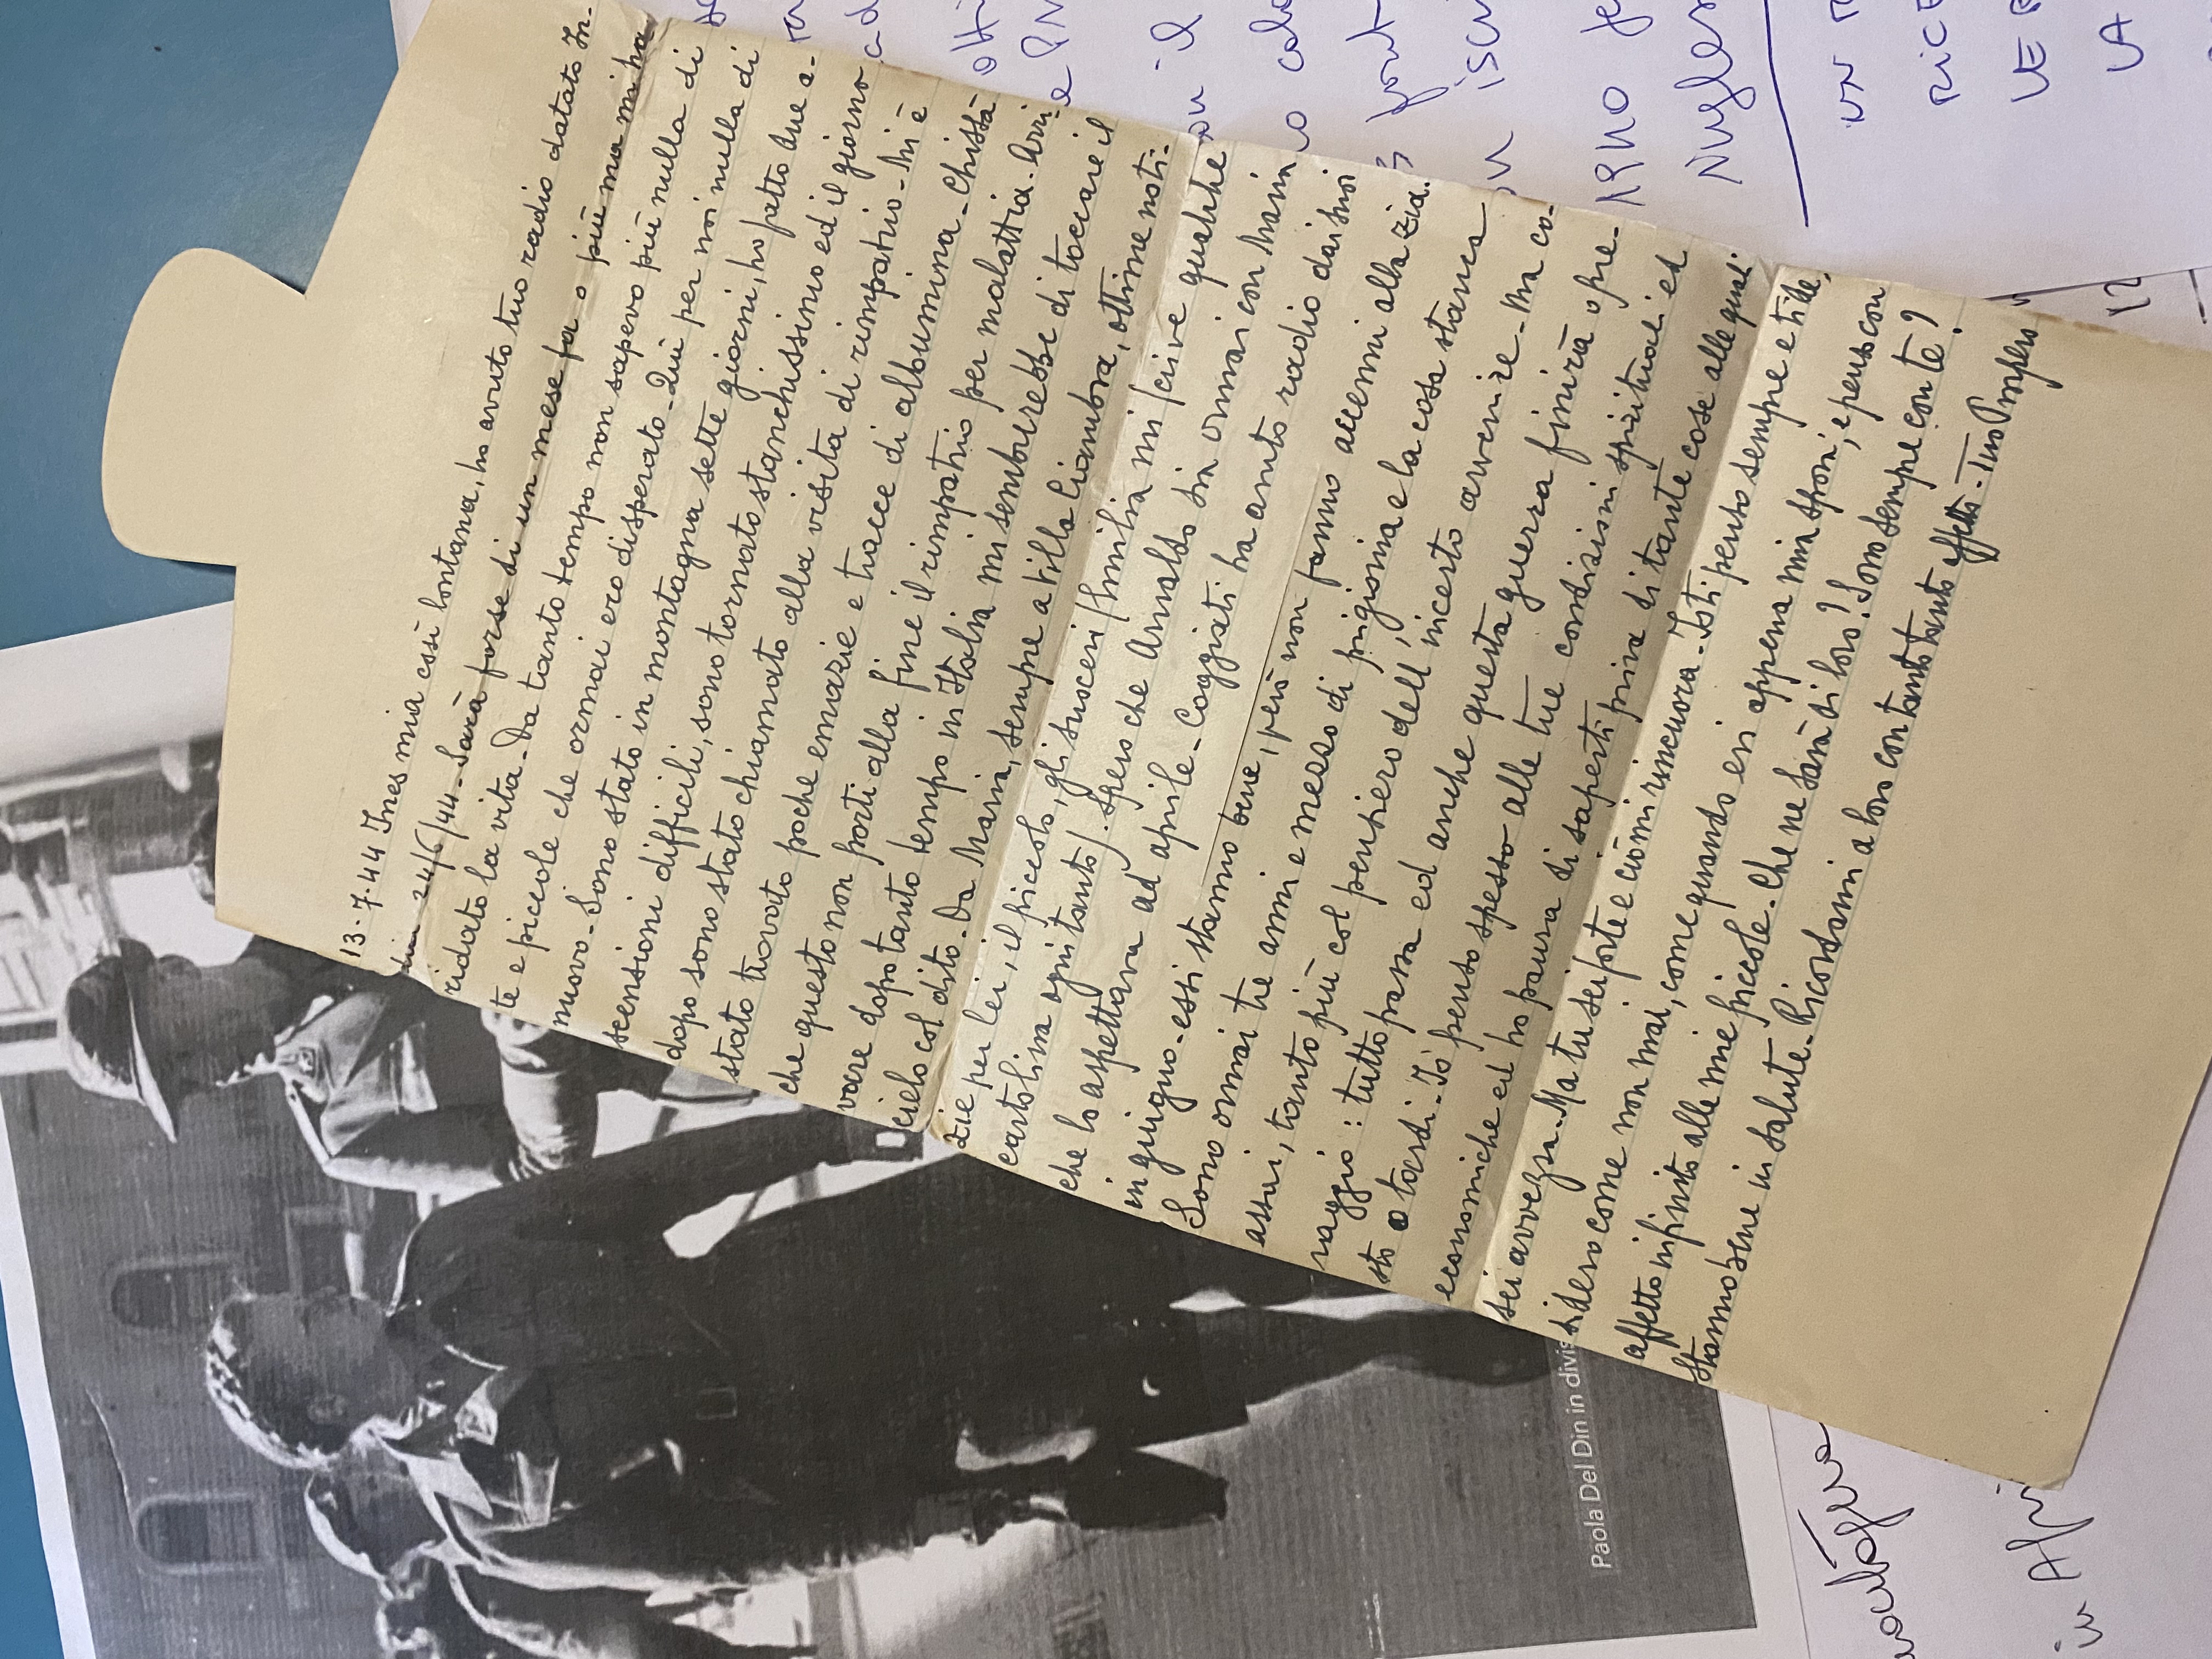 13-7-44 Ines mia così lontana, ho avuto tuo radio datato In-
24/6/44 - Sarà forse di un mese fa o più ma mi ha
ridato la vita - Da tanto tempo non sapevo più nulla di
te e piccole che ormai ero disperato - Qui per noi nulla di
nuovo - Sono stato in montagna sette giorni, ho fatto due a-
scensioni difficili, sono tornato stanchissimo ed il giorno
dopo sono stato chiamato alla visita di rimpatrio - Mi è
stato trovato poche emazie e tracce di albumina - Chissà
che questo non porti alla fine il rimpatrio per malattia. Arri-
vare dopo tanto tempo in Italia mi sembrerebbe di toccare il
cielo col dito. Da Maria, sempre a Villa Ciambra, ottime noti-
zie per lei, il piccolo, gli suoceri (Emilia mi scrive qualche
cartolina ogni tanto). Spero che Arnaldo sia ormai con Maria
che lo aspettava ad aprile - Coggiati ha avuto radio dai suoi
in giugno - essi stanno bene, però non fanno accenni alla zia.
Sono ormai tre anni e mezzo di prigionia e la cosa stanca
assai, tanto più col pensiero dell'incerto avvenire - Ma co-
raggio: tutto passa ed anche questa guerra finirà o pre-
sto o tardi - Io penso spesso alle tue condizioni spirituali ed
economiche ed ho paura di saperti priva di tante cose alle quali
sei avvezza. Ma tu sei forte e ciò mi rincuora. Io ti penso sempre e ti de-
sidero come non mai, come quando eri appena mia sposa, e penso con
affetto infinito alle mie piccole. Che ne sarà di loro? Sono sempre con te?
Stanno bene in salute. Ricordami a loro con tanto tanto affetto - Tuo Prospero
Paola Del Din in divis
UN
RICE
VE
VA
12
Nugles
in